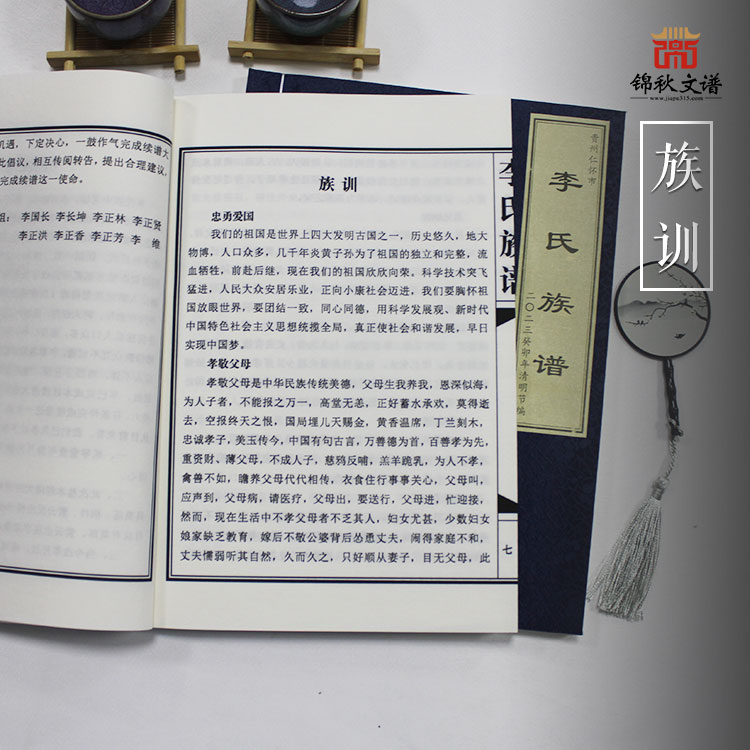 锦秋文谱
www.jiapu315.com
族训
机遇，下定决心，一鼓作气完成续谱大
此倡议，相互传阅转告，提出合理建议，
完成续谱这一使命。
组：李国长 李长坤 李正林 李正贤
李正洪 李正香 李正芳 李 维
族训
忠勇爱国
我们的祖国是世界上四大发明古国之一，历史悠久，地大
物博，人口众多，几千年炎黄子孙为了祖国的独立和完整，流
血牺牲，前赴后继，现在我们的祖国欣欣向荣，科学技术突飞
猛进，人民大众安居乐业，正向小康社会迈进，我们要胸怀祖
国放眼世界，要团结一致，同心同德，用科学发展观、新时代
中国特色社会主义思想统揽全局，真正使社会和谐发展，早日
实现中国梦。
孝敬父母
孝敬父母是中华民族传统美德，父母生我养我，恩深似海，
为人子者，不能报之万一，高堂无恙，正好蓄水承欢，莫得逝
去，空报终天之恨，国局埋儿天赐金，黄香温席，丁兰刻木，
忠诚孝子，美玉传今，中国有句古言，万善德为首，百善孝为先，
重资财、薄父母，不成人子，慈鸦反哺，羔羊跪乳，为人不孝，
禽兽不如，瞻养父母代代相传，衣食住行事事关心，父母叫，
应声到，父母病，请医疗，父母出，要送行，父母进，忙迎接，
然而，现在生活中不孝父母者不乏其人，妇女尤甚，少数妇女
娘家缺乏教育，嫁后不敬公婆背后怂恿丈夫，闹得家庭不和，
丈夫懦弱听其自然，久而久之，只好顺从妻子，目无父母，此
李氏族谱
七
贵州仁怀市
李氏族谱
二〇二三癸卯年清明节编